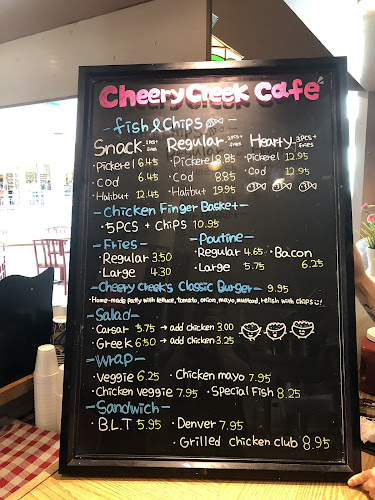 Cheery Creek Cafe
- fish & Chips -
Snack 1pcs+ fries Regular 2pcs+ fries Hearty 3pcs+ fries
· Pickerel 6.45 · Pickerel 8.85 · Pickerel 12.95
· Cod 6.45 · Cod 8.85 · Cod 12.95
· Halibut 12.45 · Halibut 19.95
- Chicken Finger Basket -
· 5pcs + chips 10.95
- Fries - - Poutine -
· Regular 3.50 · Regular 4.65 · Bacon 6.25
· Large 4.30 · Large 5.75
- Cheery creek's Classic Burger - 9.95
Home-made patty with lettuce, tomato, onion, mayo, mustard, relish with chips
- Salad -
· Carsar 5.75 → add chicken 3.00
· Greek 6.50 → add chicken 3.25
- Wrap -
· Veggie 6.25 · Chicken mayo 7.95
· Chicken veggie 7.95 · Special Fish 8.25
- Sandwich -
· B.L.T 5.95 · Denver 7.95
· Grilled chicken club 8.95